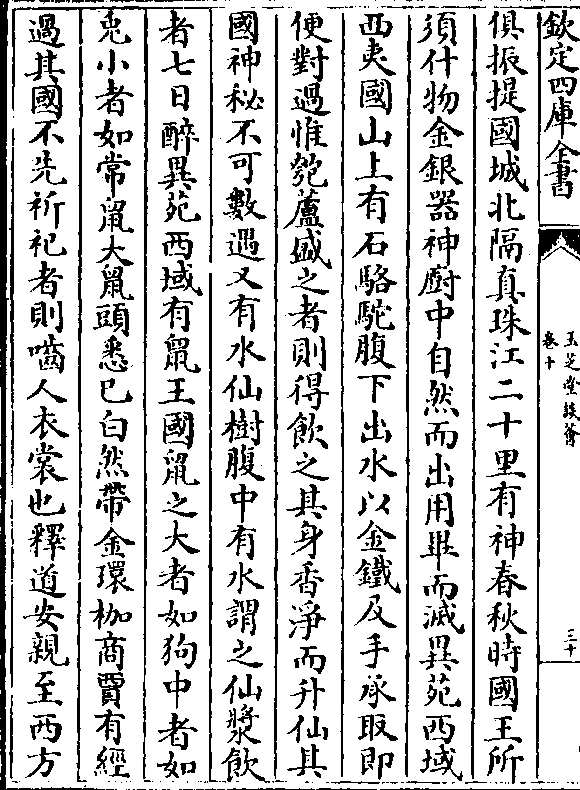 欽定四庫全書
玉芝堂談薈
卷十
三十
俱振提國城北隔真珠江二十里有神春秋時國王所
須什物金銀器神廚中自然而出用畢而滅異苑西域
西夷國山上有石駱駝腹下出水以金鐵及手承取即
便對過惟瓠蘆盛之者則得飲之其身香淨而升仙其
國神秘不可數遇又有水仙樹腹中有水謂之仙漿飲
者七日醉異苑西域有鼠王國鼠之大者如狗中者如
兎小者如常鼠大鼠頭悉已白然帶金環枷商賈有經
過其國不先祈祀者則嚙人衣裳也釋道安親至西方